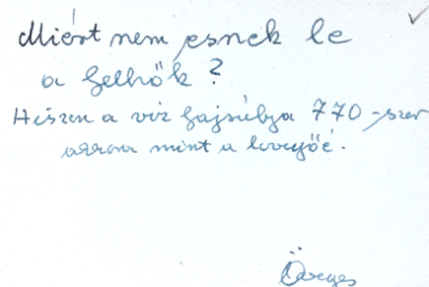 Miért nem esnek le
a felhők?
Hiszen a víz fajsúlya 770-szer
annyi mint a levegőé.
Öveges